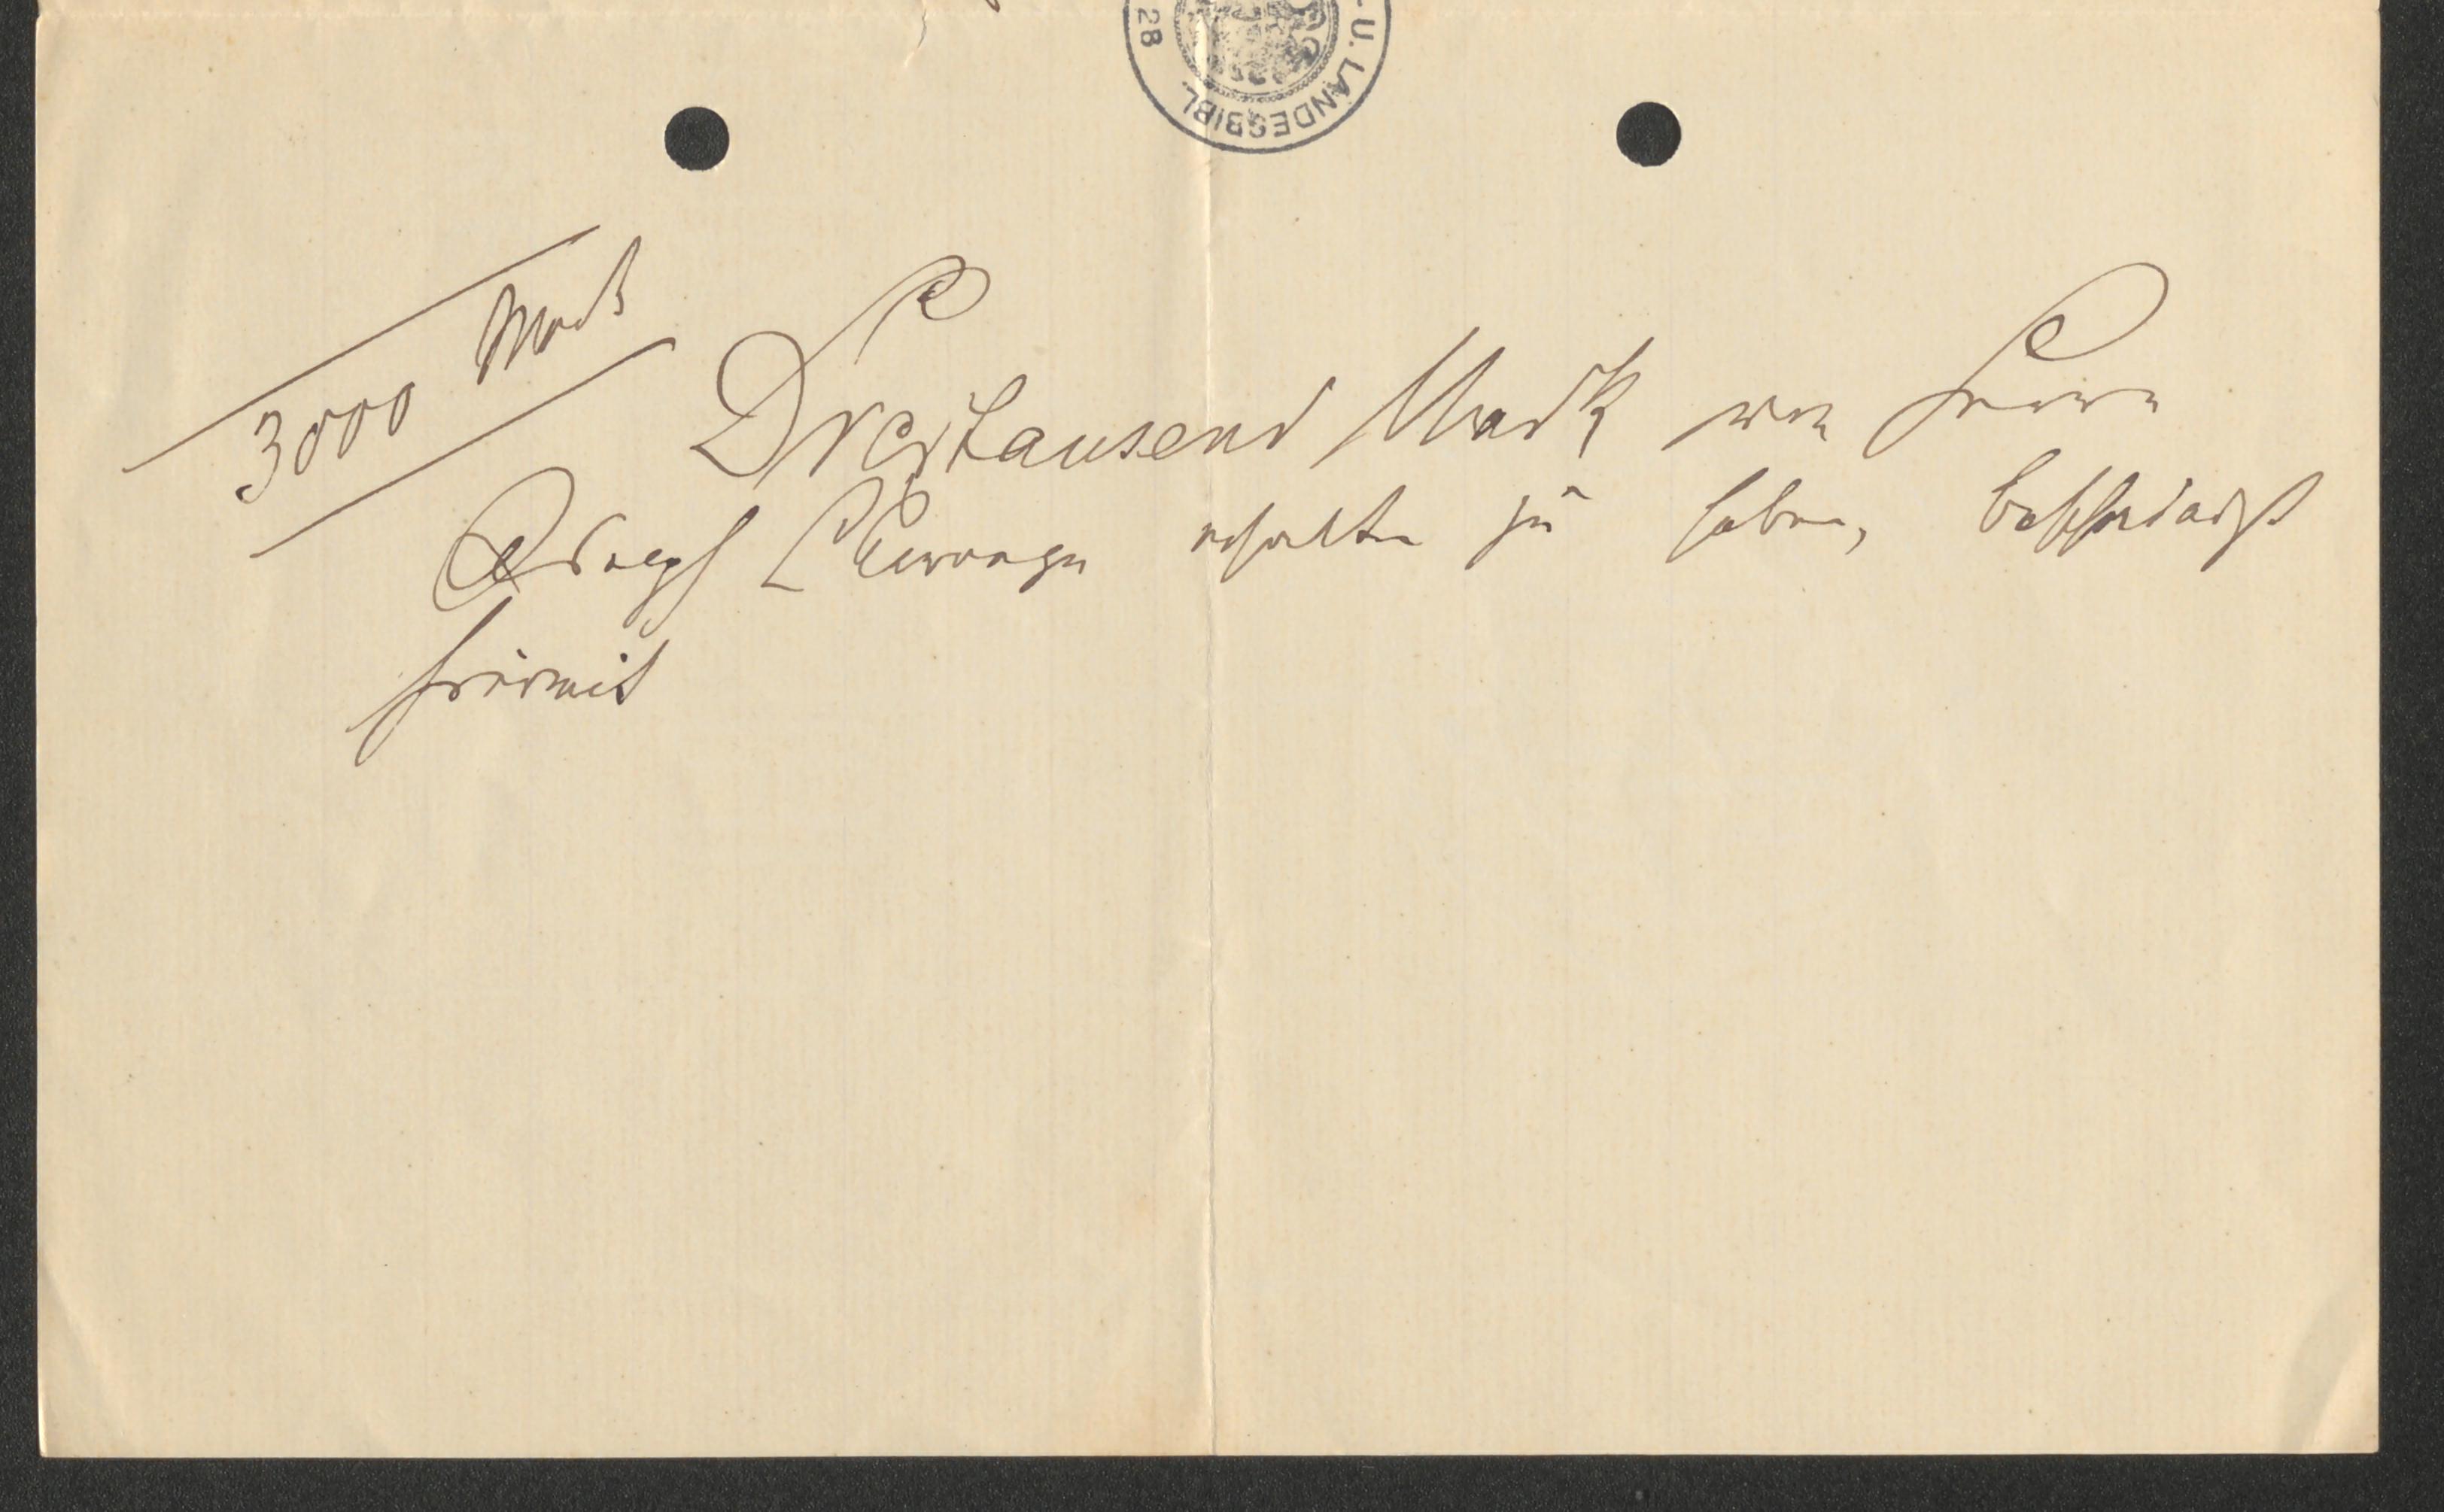 28
-U. LANDESBIBL.
3000 Mark
Dreytausend Mark von Herrn
Adolph erhalten zu haben, bescheinigt
hiermit